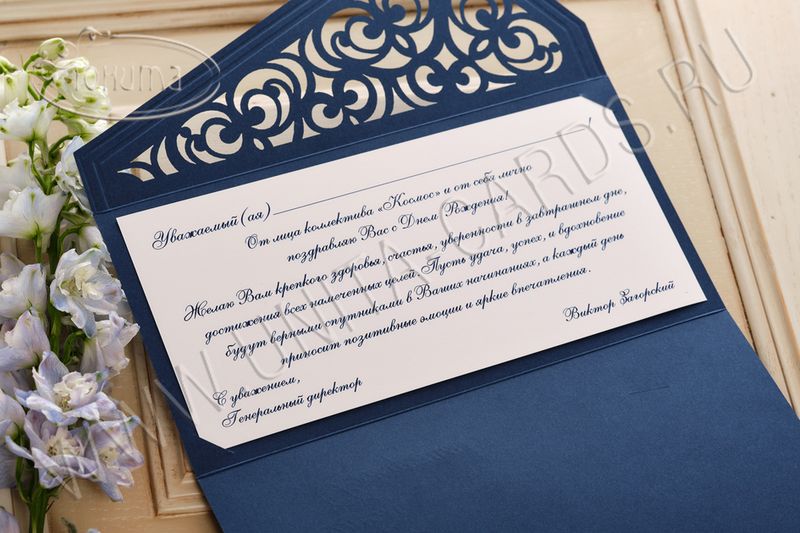 Юнита
WWW.UNITA-CARDS.RU
Уважаемый (ая) !
От лица коллектива «Космос» и от себя лично
поздравляю Вас с Днем Рождения!
Желаю Вам крепкого здоровья, счастья, уверенности в завтрашнем дне,
достижения всех намеченных целей. Пусть удача, успех, и вдохновение
будут верными спутниками в Ваших начинаниях, а каждый день
приносит позитивные эмоции и яркие впечатления.
С уважением,
Генеральный директор
Виктор Загорский